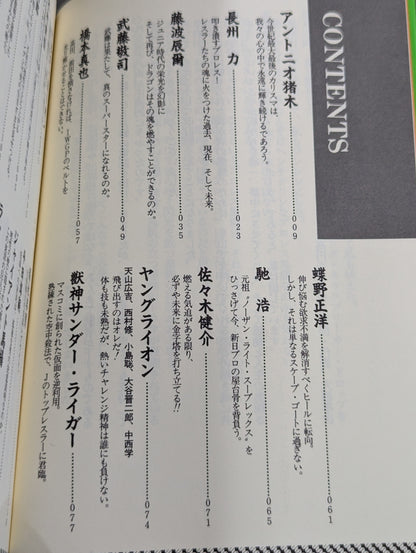 CONTENTS
アントニオ猪木 009
今世紀最大最後のカリスマは、
我々の心の中で永遠に輝き続けるであろう。
長州 力 023
叩き潰すプロレス!
レスラーたちの魂に火をつけた過去、現在、そして未来。
藤波辰爾 035
ジュニア時代の栄光を幻影に
そして再び、ドラゴンはその魂を燃やすことができるのか。
武藤敬司 049
武藤は果たして、真のスーパースターになれるのか。
橋本真也 057
蝶野正洋 061
伸び悩む欲求不満を解消すべくヒールに転向。
しかし、それは単なるスケープ・ゴートに過ぎない。
馳 浩 065
元祖〝ノーザン・ライト・スープレックス〟を
ひっさげて今、新日プロの屋台骨を背負う。
佐々木健介 071
燃える気迫がある限り、
必ずや未来に金字塔を打ち立てる!!
ヤングライオン 074
天山広吉、西村修、小島聡、大谷晋二郎、中西学
飛び出すのはオレだ!
体も技も未熟だが、熱いチャレンジ精神は誰にも負けない。
獣神サンダー・ライガー 077
マスコミに創られた仮面を逆利用。
熟練された空中殺法で、Jのトップレスラーに君臨。